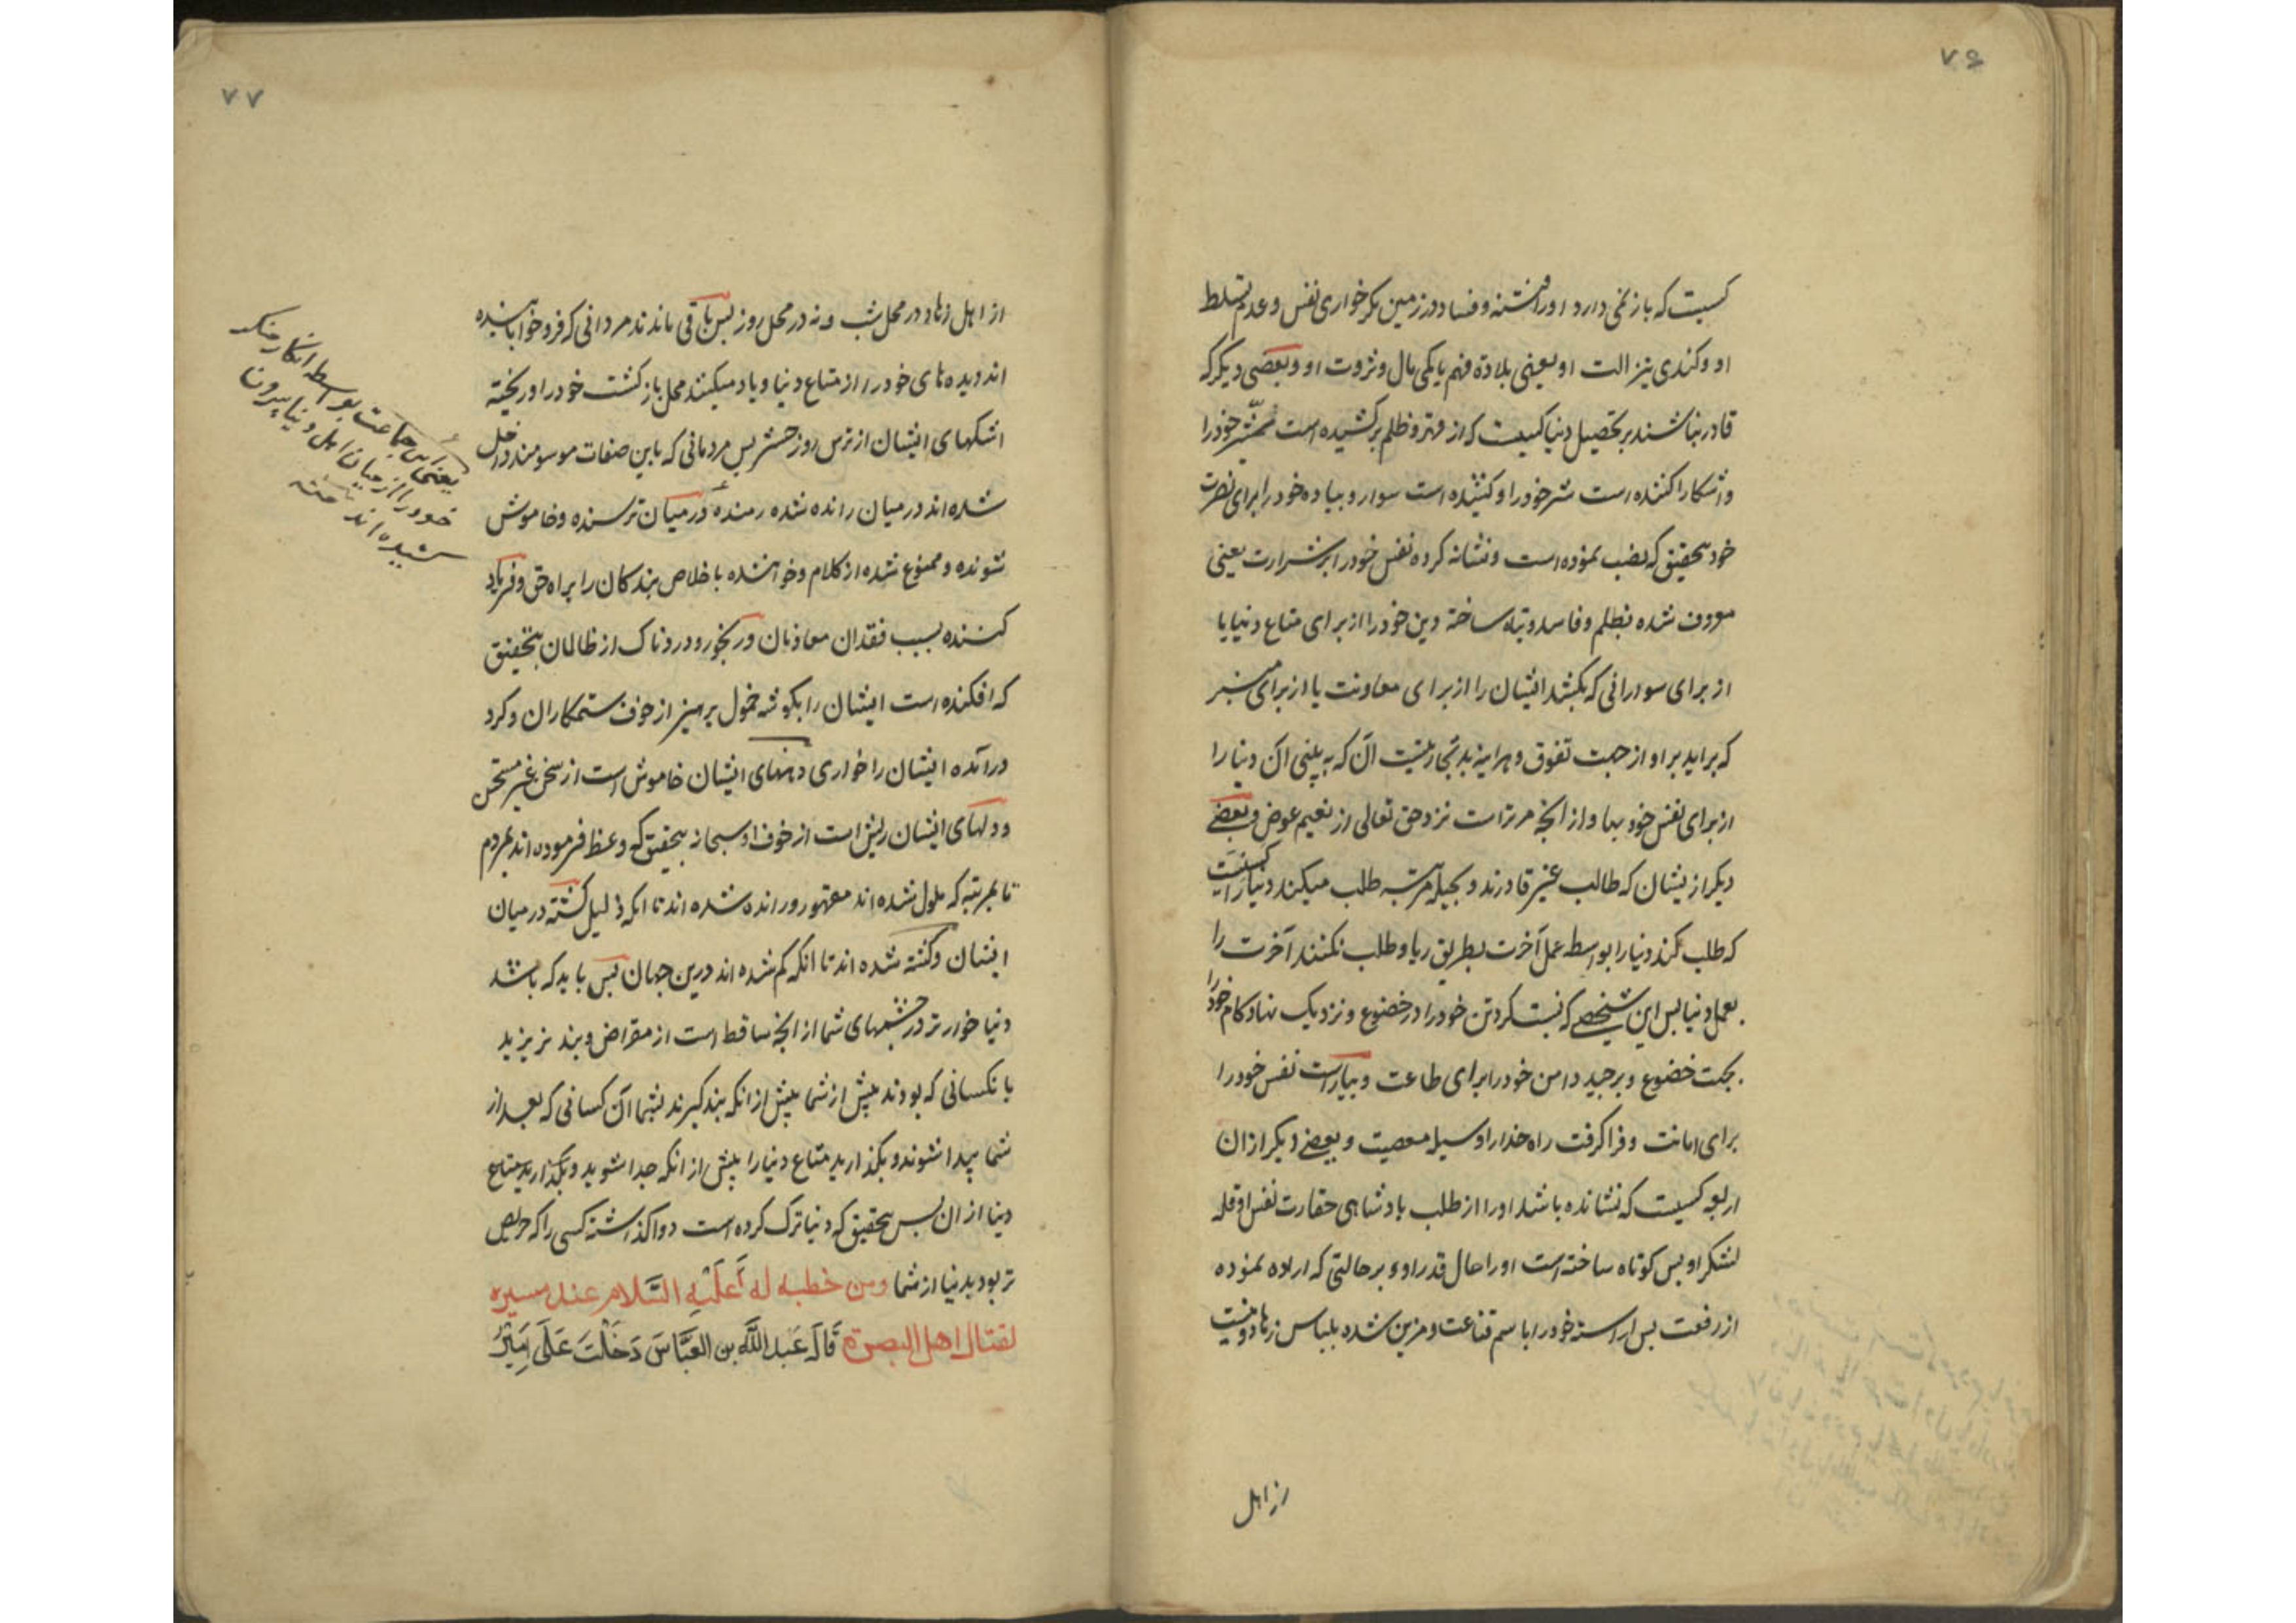 ۷۶
کسیست که باز نمی دارد او را از فتنه و فساد در زمین مکر خواری نفس و عدم تسلط
او و کندی تیز الت او یعنی بلادة فهم یا کمی مال و ثروت او و بعضی دیکر که
قادر نباشند بر تحصیل دنیا کسیست که از قهر و ظلم برکشیده است شمشیر خود را
و اشکارا کننده است شر خود را و کشیده است سوار و پیاده خود را برای نصرت
خود بتحقیق که نصب نموده است و نشانه کرده نفس خود را بر شرارت یعنی
معروف شده بظلم و فاسد و تباه ساخته دین خود را از برای متاع دنیا یا
از برای سوارانی که بکشد ایشان را از برای معاونت یا از برای منبر
که براید بر او از جهت تفوق و هراینه بد تجارتیست آن که به بینی آن دنیا را
از برای نفس خود بها و از انچه مر تراست نزد حق تعالی از نعیم عوض و بعضی
دیکر از یشان که طالب غیر قادرند و بحیله مرتبه طلب میکند دنیا را کسیست
که طلب کند دنیا را بواسطه عمل آخرت بطریق ریا و طلب نکنند آخرت را
بعمل دنیا پس این شخصی که پست کرد تن خود را در خضوع و نزدیک نهاد کام خود را
بجهت خضوع و برچید دامن خود را برای طاعت و بیاراست نفس خود را
برای امانت و فرا کرفت راه خدا را وسیله معصیت و بعضی دیکر از ان
اربعه کسیست که نشانده باشد او را از طلب بادشاهی حقارت نفس او و قله
لشکر او پس کوتاه ساخته است او را حال قدر او بر حالتی که اراده نموده
از رفعت پس اراسته خود را باسم قناعت و مزین شده بلباس زهاد و نیست
از اهل
۷۷
از اهل زهاد در محل شب و نه در محل روز پس باقی ماندند مردانی که فرو خوابانیده
اند دیده های خود را از متاع دنیا و یاد میکنند محل بازکشت خود را و ریخته
اشکهای ایشان از ترس روز حشر پس مردمانی که باین صفات موسومند داخل
شده اند در میان رانده شده رمنده و در میان ترسنده و خاموش
شونده و ممنوع شده از کلام و خواهنده باخلاص بندکان را براه حق و فریاد
کننده بسبب فقدان معاذبان و رنجور و دردناک از ظالمان بتحقیق
که افکنده است ایشان را بکوشه خمول پرهیز از خوف ستمکاران و کرد
درآمده ایشان را خواری دهنهای ایشان خاموش است از سخن غیر مستحسن
و دلهای ایشان ریش است از خوف او سبحانه بتحقیق که وعظ فرموده اند بمردم
تا بمرتبه که ملول شده اند مقهور و رانده شده اند تا انکه ذلیل کشته در میان
ایشان و کشته شده اند تا انکه کم شده اند درین جهان پس باید که باشد
دنیا خوارتر در چشمهای شما از انچه ساقط است از مقراض و پند پزیرید
بانکسانی که بودند پیش از شما پیش از انکه پند کیرند بشما آن کسانی که بعد از
شما پیدا شوند و بکذارید متاع دنیا را پیش از انکه جدا شوید و بکذارید متاع
دنیا از ان پس بتحقیق که دنیا ترک کرده است و واکذاشته کسی را که حریص
تر بود بدنیا از شما ومن خطبه له عَلَیْهِ السَّلام عند مسیره
لقتال اهل البصرة قَالَ عَبد اللَّه بن العَبَّاسَ دَخَلتَ عَلَی اَمِیْرُ
یعنی این جماعت بواسطه انکار منکر
خود را از میان اهل دنیا بیرون
کشیده اند منه